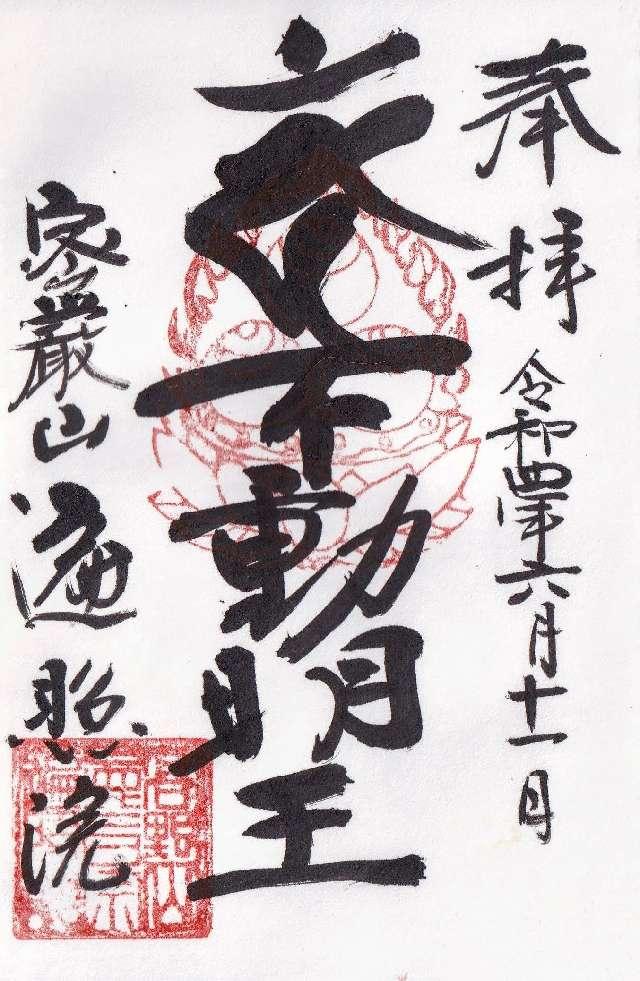 奉拝 令和四年六月十一日
不動明王
密厳山 遍照院